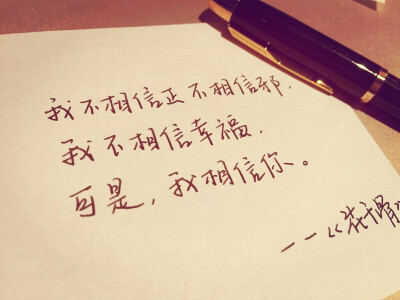 我不相信正不相信邪.
我不相信幸福.
可是，我相信你。
——《花千骨